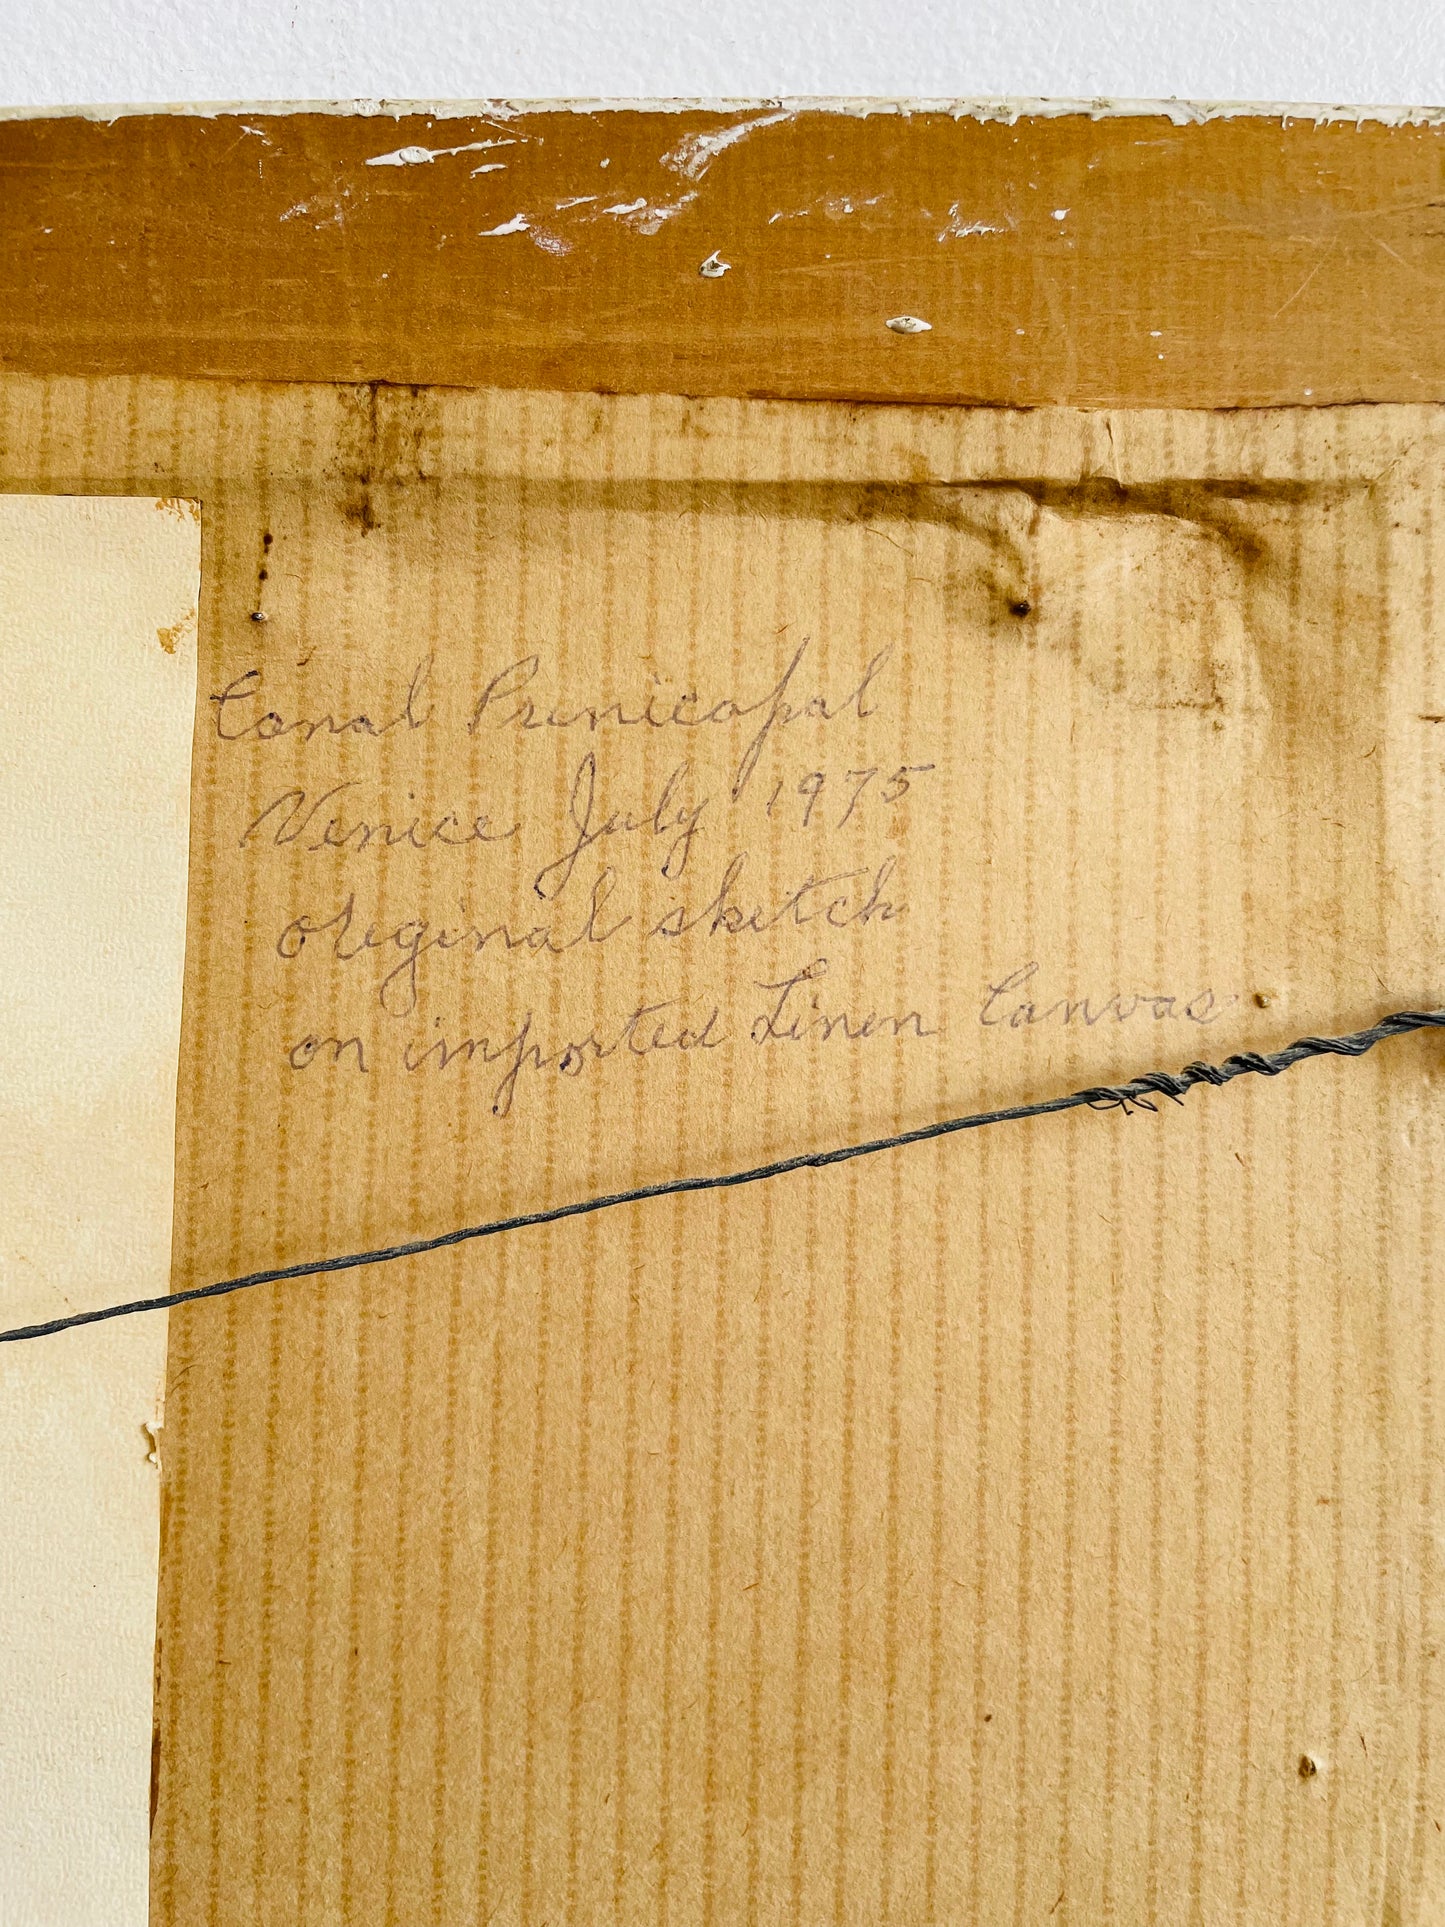 Canal Prinicapal
Venice July 1975
original sketch
on imported Linen Canvas